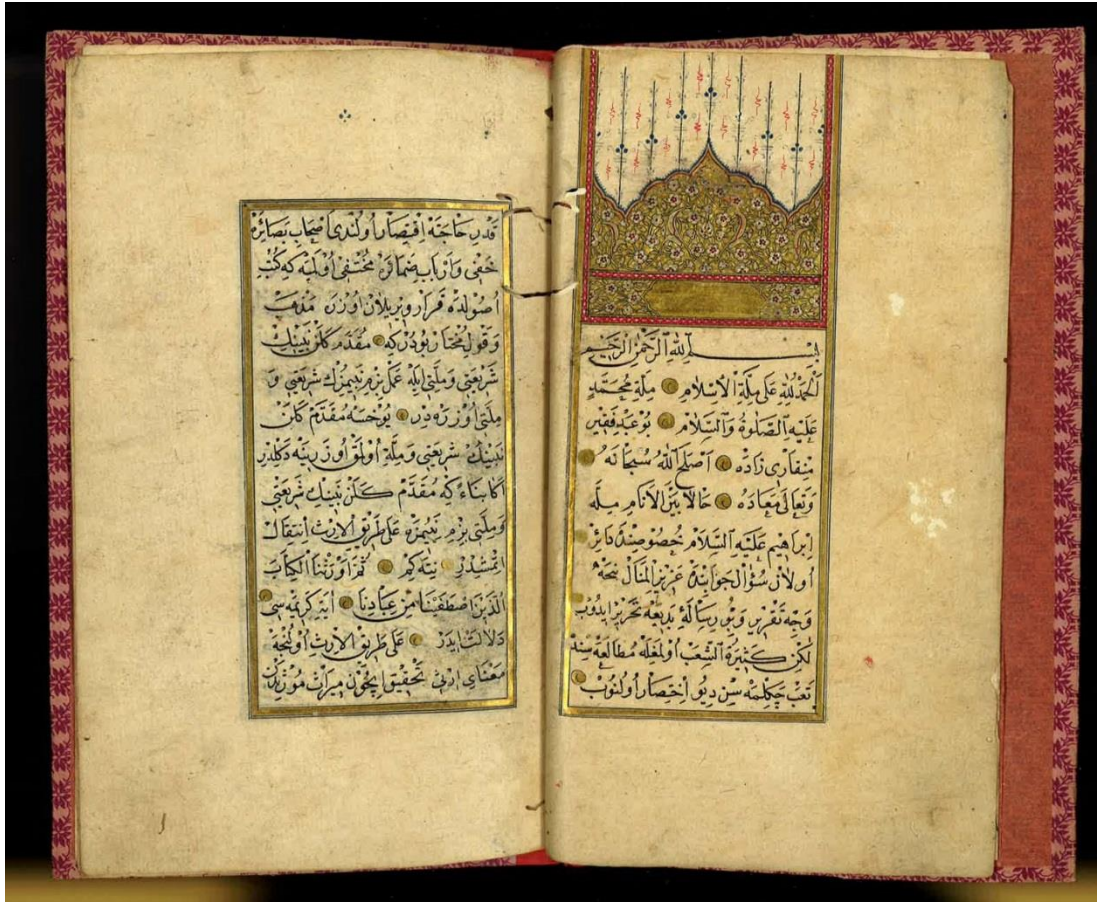 بسم الله الرحمن الرحيم
اَلْحَمْدُ لِلّٰهِ عَلَى مِلَّةِ الْاِسْلَامِ مِلَّةِ مُحَمَّدٍ
عَلَيْهِ الصَّلٰوةُ وَالسَّلَامُ بُو عَبْدِ فَقِيرْ
مِنْقَارِى زَادَه اَصْلَحَ اللّٰهُ سُبْحَانَهُ
وَتَعَالَى مَعَادَهُ حَالَا بَيْنَ الْاَنَامِ مِلَّه
اِبْرَاهِيم عَلَيْهِ السَّلَامْ خُصُوصِنْدَه دَائِرْ
اُولَانْ سُؤَال جَوَابِنْدَه عَزِيزُ الْمَنَالْ نِيجَه
وَجْه تَقْرِيرْ وَبُو رِسَالَهٔ بَدِيعَه تَحْرِيرْ اِيدُوبْ
لٰكِنْ كَثِيرَةُ الشُّعَبْ اُولْمَغْلَه مُطَالَعَه سِنْدَه
تَعَبْ چَكِلْمَه سِنْ دِيُو اِخْتِصَارْ اُولُنُوبْ
قَدْرِ حَاجَتَه اِقْتِصَارْ اُولُنْدِى اَصْحَابِ بَصَائِرَه
خَفِى وَاَرْبَابِ ضَمَائِرَه مُخْتَفِى اُولْمَيَه كِه كُتُبِ
اُصُولْدَه قَرَارْ وِيرِيلَانْ اُوزْرَه مَذْهَبْ
وَقَوْلِ مُخْتَارْ بُودُرْ كِه مُقَدَّمْ كَلَنْ نَبِينِكْ
شَرِيعَتِى وَمِلَّتِى اِيلَه عَمَلْ بِزِمْ نَبِيمِزِكْ شَرِيعَتِى وَ
مِلَّتِى اُوزْرَه دِرْ يُوخْسَه مُقَدَّمْ كَلَنْ
نَبِينِكْ شَرِيعَتِى وَمِلَّتِ اُولْمَقْ اُوزْرِينَه دَكِلْدِرْ
اَكَا بِنَاءً كِه مُقَدَّمْ كَلَنْ نَبِينِكْ شَرِيعَتِى
وَمِلَّتِى بِزِمْ نَبِيمِزَه عَلَى طَرِيقِ الْاِرْثْ اِنْتِقَالْ
اِتْمِشْدِرْ نِتَه كِمْ ثُمَّ اَوْرَثْنَا الْكِتَابَ
الَّذِينَ اصْطَفَيْنَا مِنْ عِبَادِنَا اٰيَتِ كَرِيمَه سِى
دَلَالَتْ اِيدَرْ عَلَى طَرِيقِ الْاِرْثْ اُولُنْجَه
مَعْنَاىِ اِرْثِى تَحْقِيقْ اِيچُونْ مِيرَاثْ مُوَرِّثْدَنْ